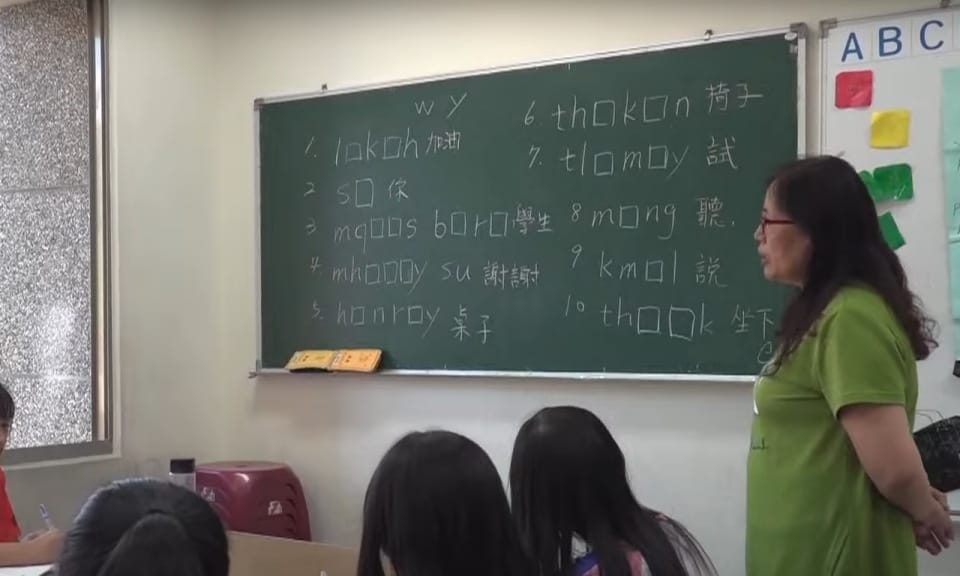 w y
1. l□k□h 加油
2 s□ 你
3 mq□□s b□r□ 學生
4 mh□□□y su 謝謝
5. h□nr□y 桌子
6. th□k□n 椅子
7. tl□m□y 試
8 m□ng 聽.
9 km□l 說
10 th□□k 坐下
A B C